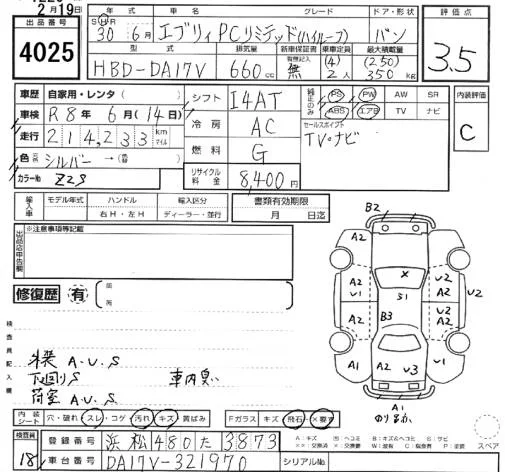 2月19日
出品番号 4025
年式 S H R 30年6月
車名 エブリィPCリミテッド(ハイルーフ)
グレード
ドア・形状 バン
評価点 3.5
型式 HBD-DA17V
排気量 660cc
新車保証書 有無記入 無
乗車定員 (4) 2人
最大積載量 (250) 350kg
車歴 自家用・レンタ( )
車検 R8年6月(14日)
走行 214,233 km マイル
色 シルバー → (替 )
カラーNo Z2S
シフト I4AT
冷房 AC
燃料 G
リサイクル料金 8,400円
純正のみ PS PW AW SR
ABS エアB TV ナビ
セールスポイント
TV・ナビ
内装評価 C
輸入車 モデル年式 年 ハンドル 右H・左H 輸入区分 ディーラー・並行
書類有効期限 月 日迄
出品店申告欄 ※注意事項等記載
修復歴 有
検査員記入欄
外装 A.U.S
下回りS 車内臭い
荷室 A.U.S
B2
A2 A2 U2
A2 U1 X S1 U2 A2
A2 B3 U2 A2
A1 A2 U3 U1
A1
内装シート 穴・破れ スレ・コゲ 汚れ キズ 黄ばみ Fガラス キズ 飛石 X要す
検査員 18
登録番号 浜松480た3873
車台番号 DA17V-321970
シリアルNo.
A：キズ B：キズ&ヘコミ S：サビ
スペア